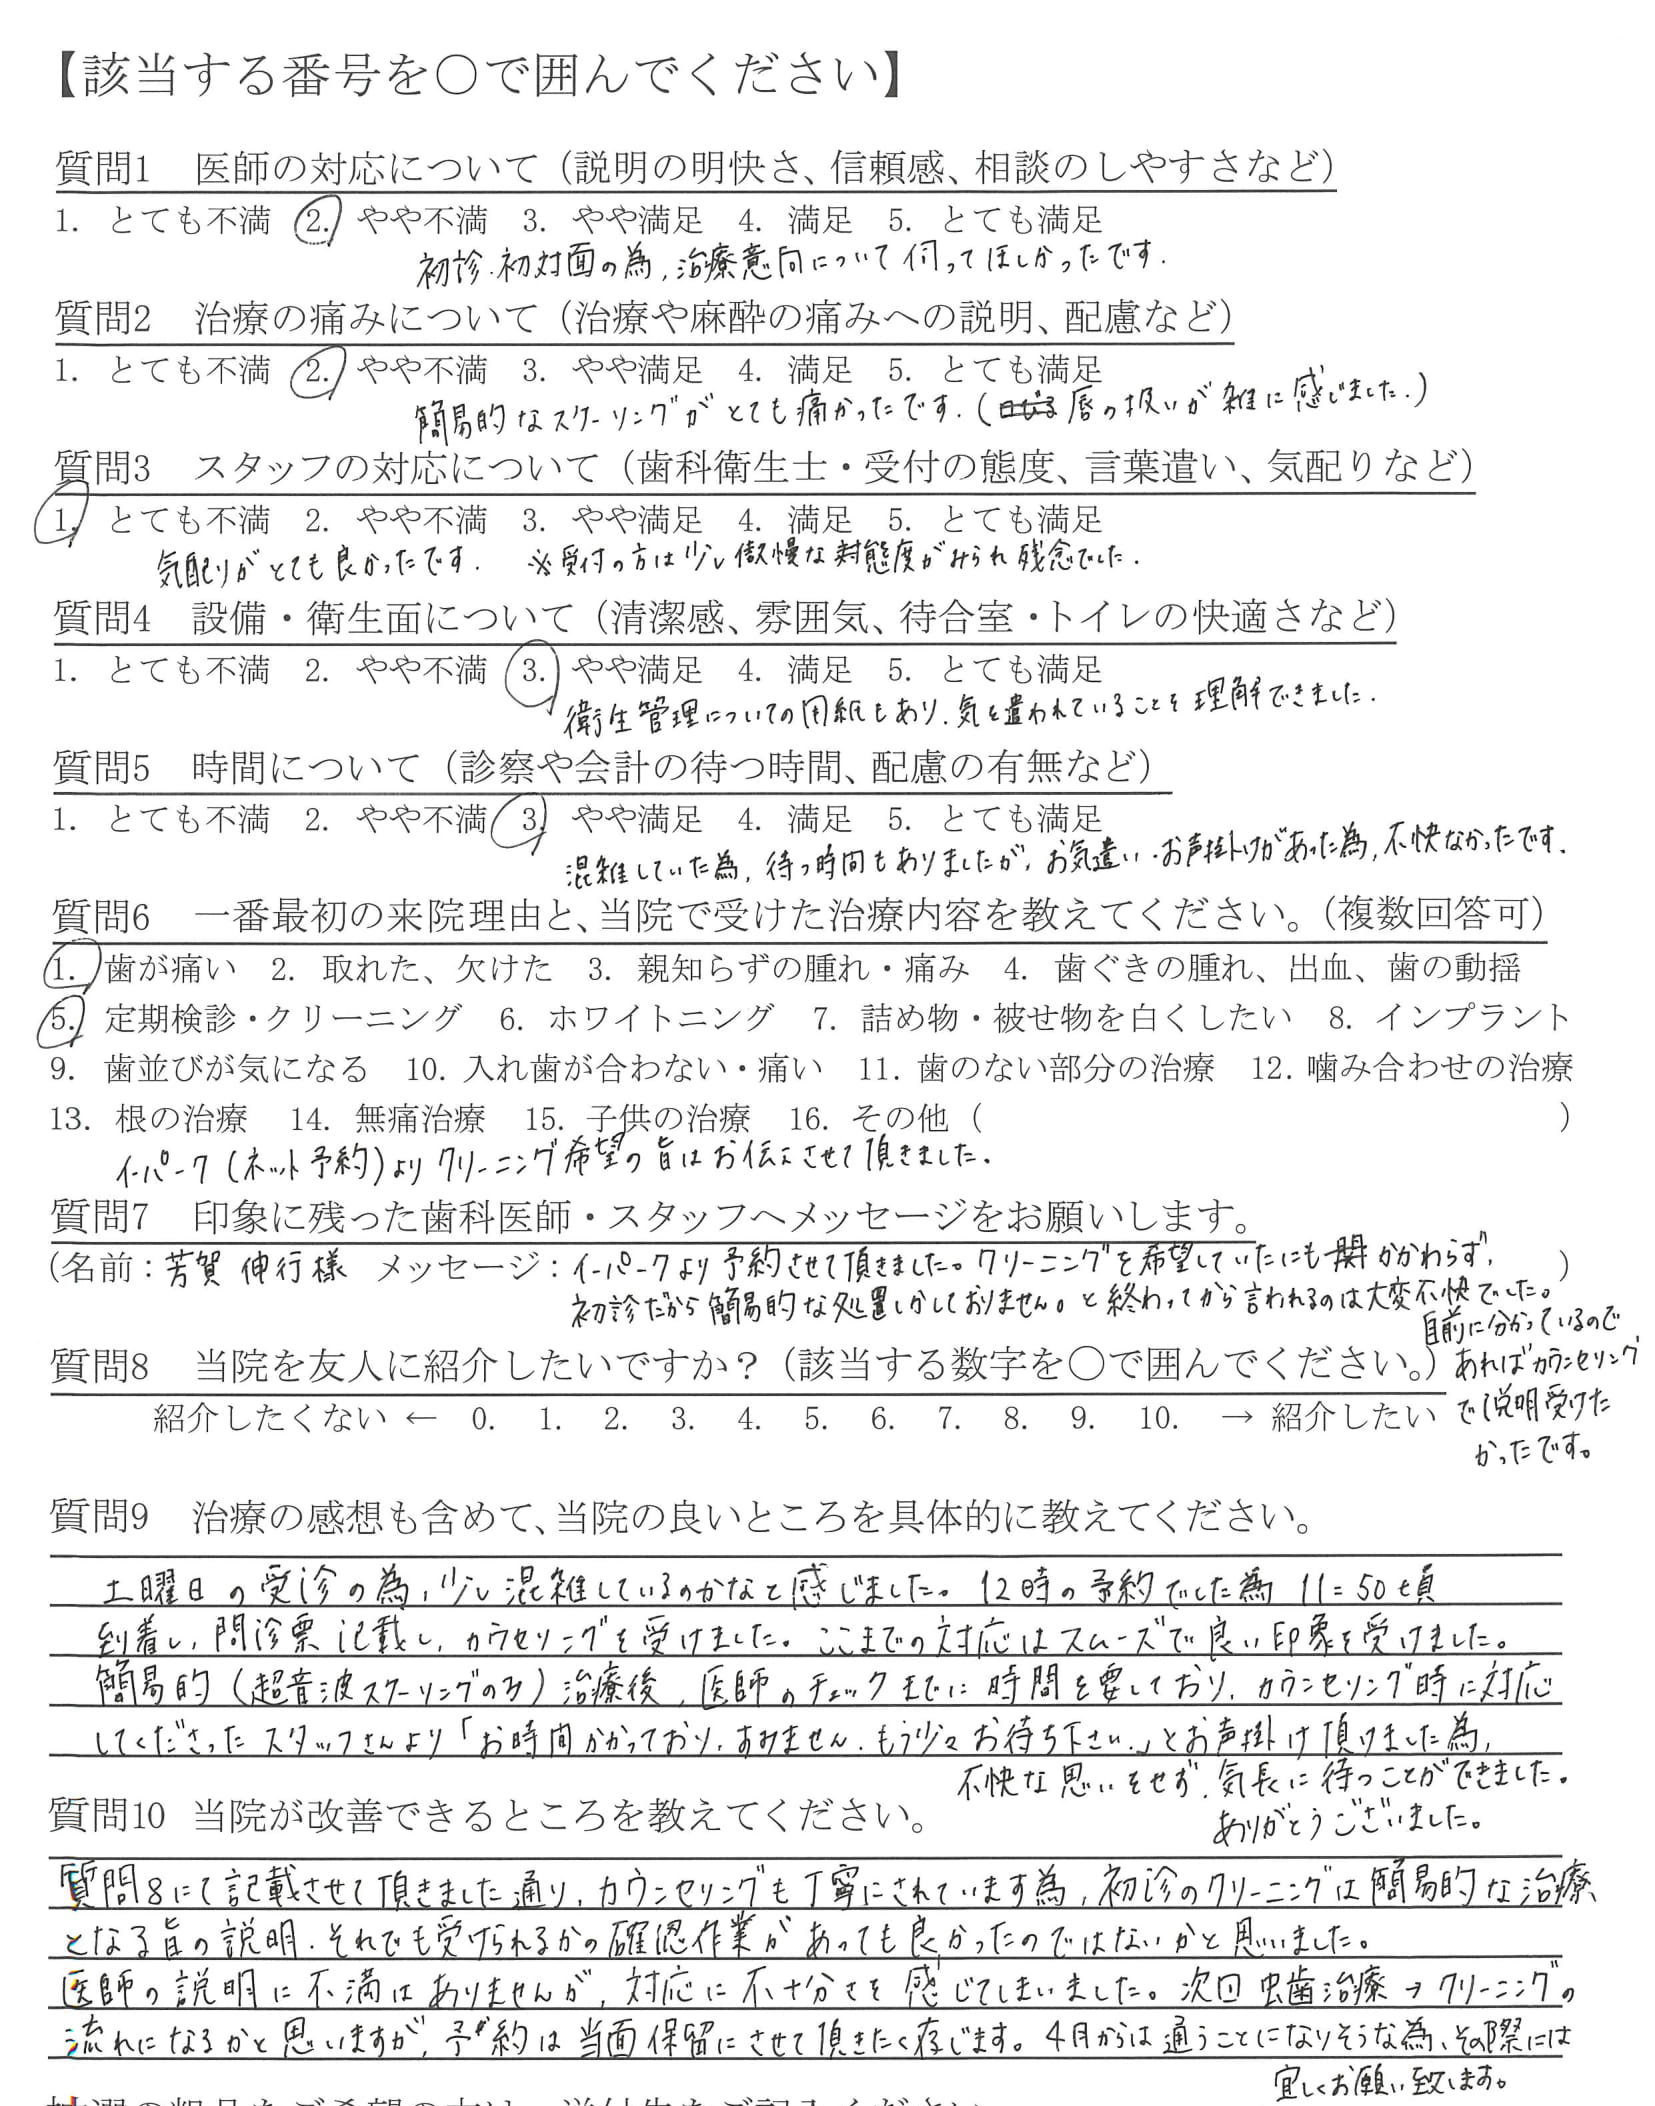 【該当する番号を〇で囲んでください】
質問1　医師の対応について（説明の明快さ、信頼感、相談のしやすさなど）
1. とても不満　2. やや不満　3. やや満足　4. 満足　5. とても満足
初診・初対面の為,治療意向について伺ってほしかったです.
質問2　治療の痛みについて（治療や麻酔の痛みへの説明、配慮など）
1. とても不満　2. やや不満　3. やや満足　4. 満足　5. とても満足
簡易的なスケーリングがとても痛かったです.(唇の扱いが雑に感じました.)
質問3　スタッフの対応について（歯科衛生士・受付の態度、言葉遣い、気配りなど）
1. とても不満　2. やや不満　3. やや満足　4. 満足　5. とても満足
気配りがとても良かったです.　※受付の方は少し傲慢な態度がみられ残念でした.
質問4　設備・衛生面について（清潔感、雰囲気、待合室・トイレの快適さなど）
1. とても不満　2. やや不満　3. やや満足　4. 満足　5. とても満足
衛生管理についての用紙もあり.気を遣われていることを理解できました.
質問5　時間について（診察や会計の待つ時間、配慮の有無など）
1. とても不満　2. やや不満　3. やや満足　4. 満足　5. とても満足
混雑していた為,待つ時間もありましたが,お気遣い・お声掛けがあった為,不快なかったです.
質問6　一番最初の来院理由と、当院で受けた治療内容を教えてください。（複数回答可）
1. 歯が痛い　2. 取れた、欠けた　3. 親知らずの腫れ・痛み　4. 歯ぐきの腫れ、出血、歯の動揺
5. 定期検診・クリーニング　6. ホワイトニング　7. 詰め物・被せ物を白くしたい　8. インプラント
9. 歯並びが気になる　10. 入れ歯が合わない・痛い　11. 歯のない部分の治療　12. 噛み合わせの治療
13. 根の治療　14. 無痛治療　15. 子供の治療　16. その他（　　　）
イーパーク(ネット予約)よりクリーニング希望の旨はお伝えさせて頂きました.
質問7　印象に残った歯科医師・スタッフへメッセージをお願いします。
（名前：芳賀 伸行様　メッセージ：イーパークより予約させて頂きました。クリーニングを希望していたにもかかわらず,）
初診だから簡易的な処置しかしておりません。と終わってから言われるのは大変不快でした。
事前に分かっているので
あればカウンセリング
で説明受けた
かったです。
質問8　当院を友人に紹介したいですか？（該当する数字を〇で囲んでください。）
紹介したくない ← 0. 1. 2. 3. 4. 5. 6. 7. 8. 9. 10. → 紹介したい
質問9　治療の感想も含めて、当院の良いところを具体的に教えてください。
土曜日の受診の為,少し混雑しているのかなと感じました。12時の予約でした為 11:50頃
到着し,問診票記載し,カウセリングを受けました。ここまでの対応はスムーズで良い印象を受けました。
簡易的(超音波スケーリングのみ)治療後,医師のチェックまでに時間を要しており,カウンセリング時に対応
してくださったスタッフさんより「お時間かかっており,すみません.もう少々お待ち下さい.」とお声掛け頂けました為,
不快な思いをせず,気長に待つことができました。
ありがとうございました。
質問10　当院が改善できるところを教えてください。
質問8にて記載させて頂きました通り,カウンセリングも丁寧にされています為,初診のクリーニングは簡易的な治療
となる旨の説明.それでも受けられるかの確認作業があっても良かったのではないかと思いました。
医師の説明に不満はありませんが,対応に不十分さを感じてしまいました。次回 虫歯治療→クリーニングの
流れになるかと思いますが,予約は当面保留にさせて頂きたく存じます。4月からは通うことになりそうな為、その際には
宜しくお願い致します。